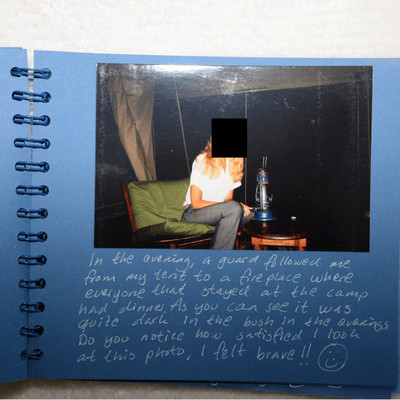 In the evening, a guard followed me
from my tent to a fireplace where
everyone that stayed at the camp
had dinner. As you can see it was
quite dark in the bush in the evenings
Do you notice how satisfied I look
at this photo, I felt brave!!